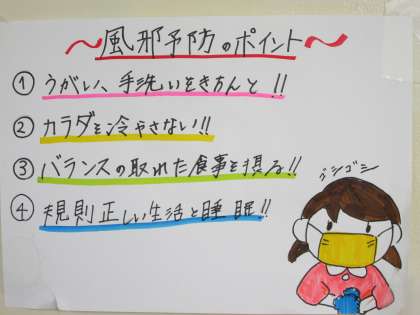 ～風邪予防のポイント～
① うがい、手洗いをきちんと!!
② カラダを冷やさない!!
③ バランスの取れた食事を摂る!!
ゴシゴシ
④ 規則正しい生活と睡眠!!